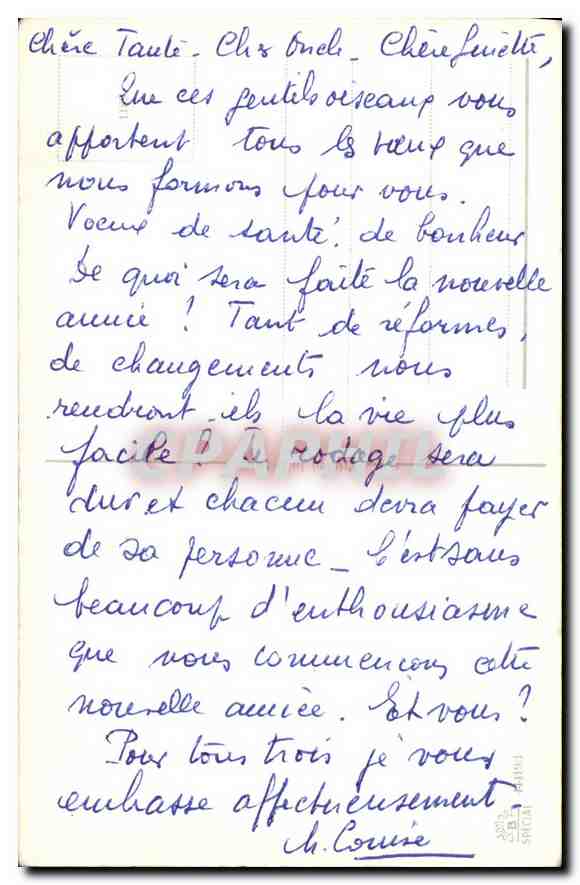 Chère Tante - Cher Oncle - Chère Ginette,
Que ces gentils oiseaux vous
apportent tous les voeux que
nous formons pour vous.
Voeux de santé, de bonheur
De quoi sera faite la nouvelle
année ! Tant de réformes,
de changements nous
rendront-ils la vie plus
facile ! Le rodage sera
dur et chacun devra payer
de sa personne - C'est sans
beaucoup d'enthousiasme
que nous commençons cette
nouvelle année. Et vous ?
Pour tous trois je vous
embrasse affectueusement,
M. Louise
CPAPHIL
SPECIAL